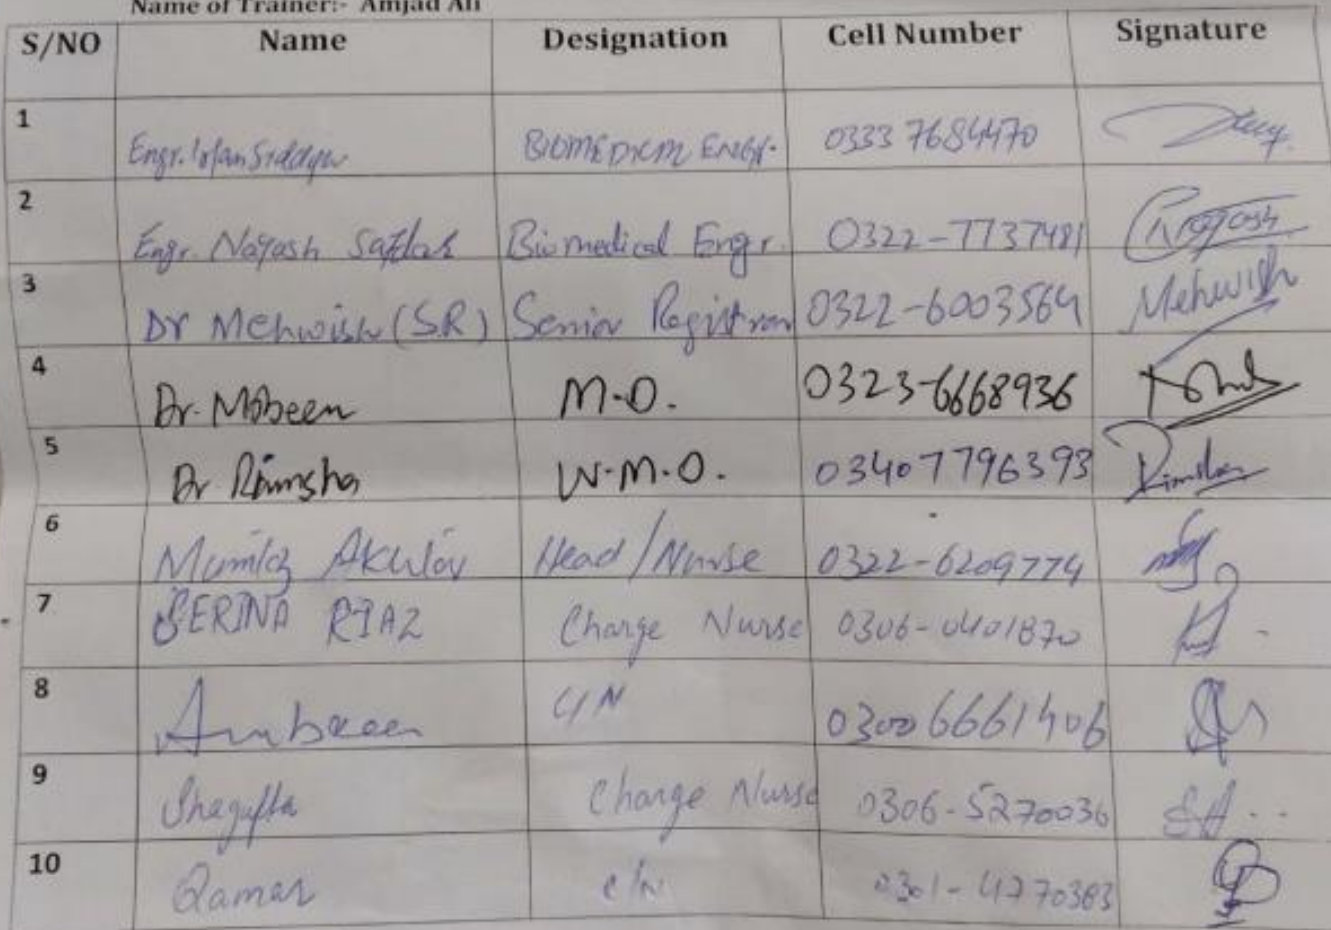 Name of Trainer:- Amjad Ali
S/NO Name Designation Cell Number Signature
1 Engr. Irfan Siddqu BIOMEDICAL ENGR. 0333 7684470
2 Engr. Naqash Safdar Biomedical Engr. 0322-7737481 Naqash
3 Dr Mehwish (SR) Senior Registrar 0322-6003564 Mehwish
4 Dr. Mobeen M.O. 0323-6668936
5 Dr Rimsha W.M.O. 03407796393 Rimsha
6 Mumtaz Akhtar Head/Nurse 0322-6209774
7 SERINA RIAZ Charge Nurse 0306-0401870
8 Ambreen C/N 03006661406
9 Shagufta Charge Nurse 0306-5270036
10 Qamar C/N 0301-4770383